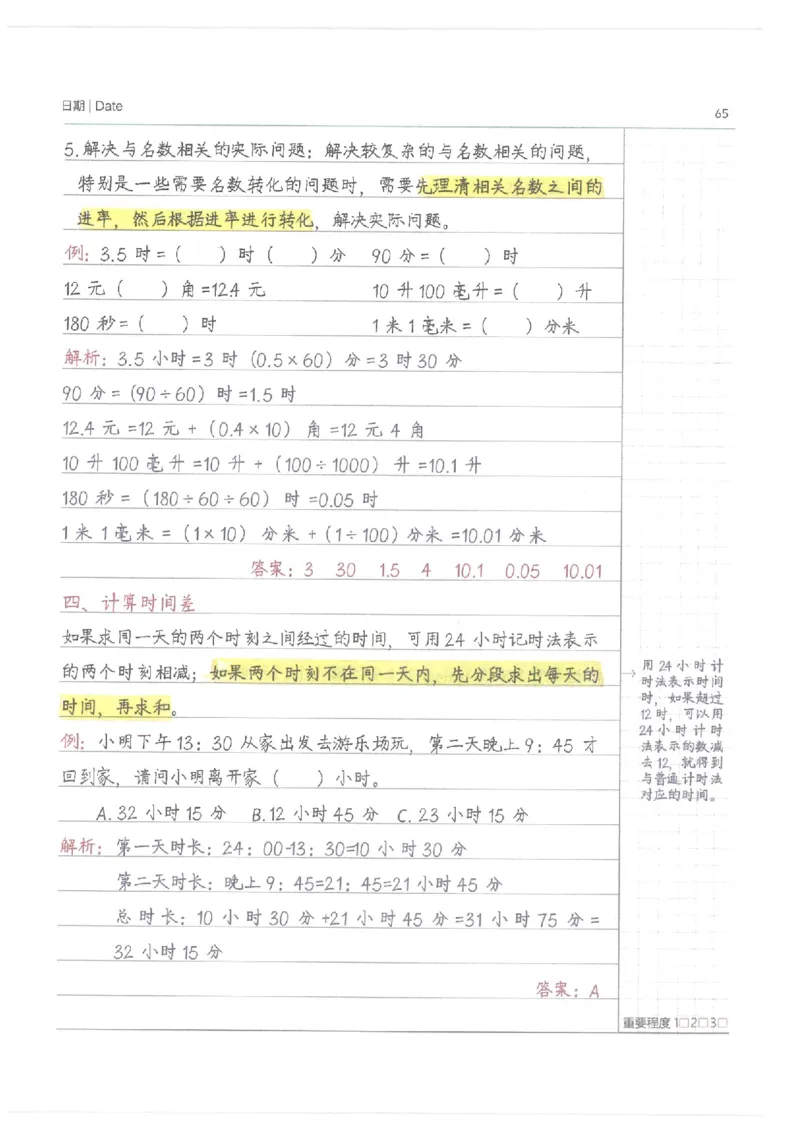 日期 | Date
65
5.解决与名数相关的实际问题：解决较复杂的与名数相关的问题，
特别是一些需要名数转化的问题时，需要先理清相关名数之间的
进率，然后根据进率进行转化，解决实际问题。
例：3.5 时 = （  ）时（  ）分  90 分 = （  ）时
12 元（  ）角 =12.4 元  10 升 100 毫升 = （  ）升
180 秒 = （  ）时  1 米 1 毫米 = （  ）分米
解析：3.5 小时 =3 时（0.5×60）分 =3 时 30 分
90 分 = （90÷60）时 =1.5 时
12.4 元 =12 元 + （0.4×10）角 =12 元 4 角
10 升 100 毫升 =10 升 + （100÷1000）升 =10.1 升
180 秒 = （180÷60÷60）时 =0.05 时
1 米 1 毫米 = （1×10）分米 +（1÷100）分米 =10.01 分米
答案：3  30  1.5  4  10.1  0.05  10.01
四、计算时间差
如果求同一天的两个时刻之间经过的时间，可用 24 小时记时法表示
的两个时刻相减；如果两个时刻不在同一天内，先分段求出每天的
时间，再求和。
例：小明下午 13：30 从家出发去游乐场玩，第二天晚上 9：45 才
回到家，请问小明离开家（  ）小时。
A.32 小时 15 分  B.12 小时 45 分  C.23 小时 15 分
解析：第一天时长：24：00-13：30=10 小时 30 分
第二天时长：晚上 9：45=21：45=21 小时 45 分
总时长：10 小时 30 分 +21 小时 45 分 =31 小时 75 分 =
32 小时 15 分
答案：A
→ 用 24 小时计
时法表示时间
时，如果超过
12 时，可以用
24 小时计时
法表示的数减
去 12，就得到
与普通计时法
对应的时间。
重要程度 1□2□3□